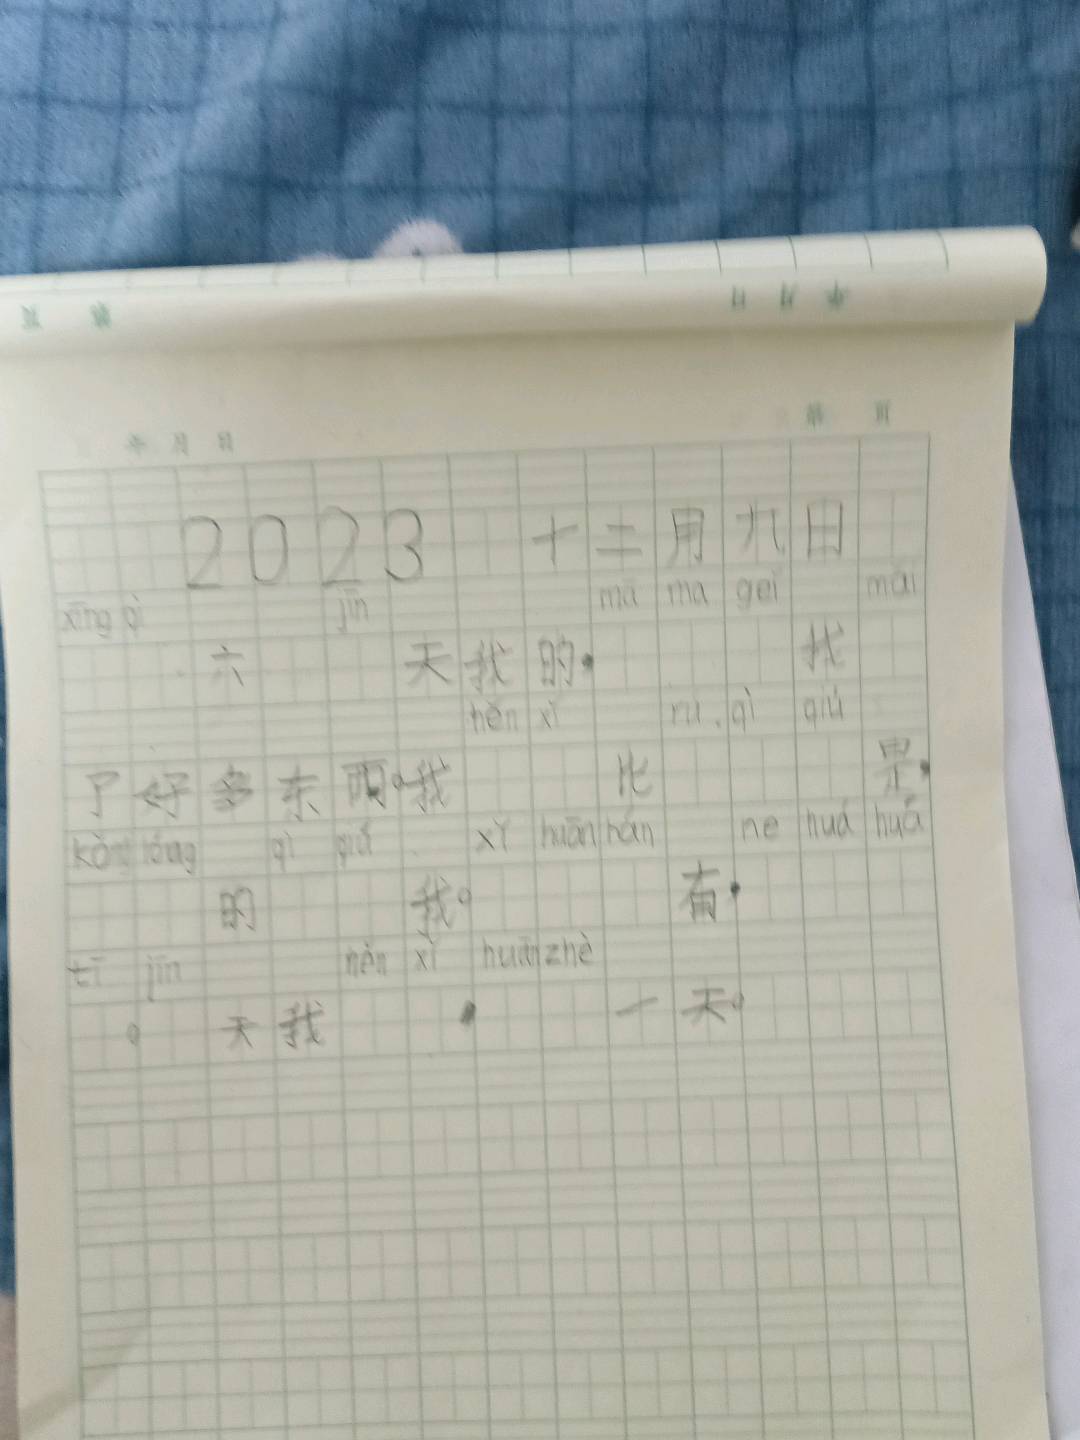 年 月 日 第 页
2023 十二月九日
xīng qì 六 jīn 天我的, mā ma gei 找 mǎi
了好多东西。我 hěn xǐ 比 rú, qì giú 是,
kǒng lóng 的 qì giú 我。 xǐ huān hán 有, ne huá huá
tī 。 jīn 天我 hěn xǐ huān zhè 一天。